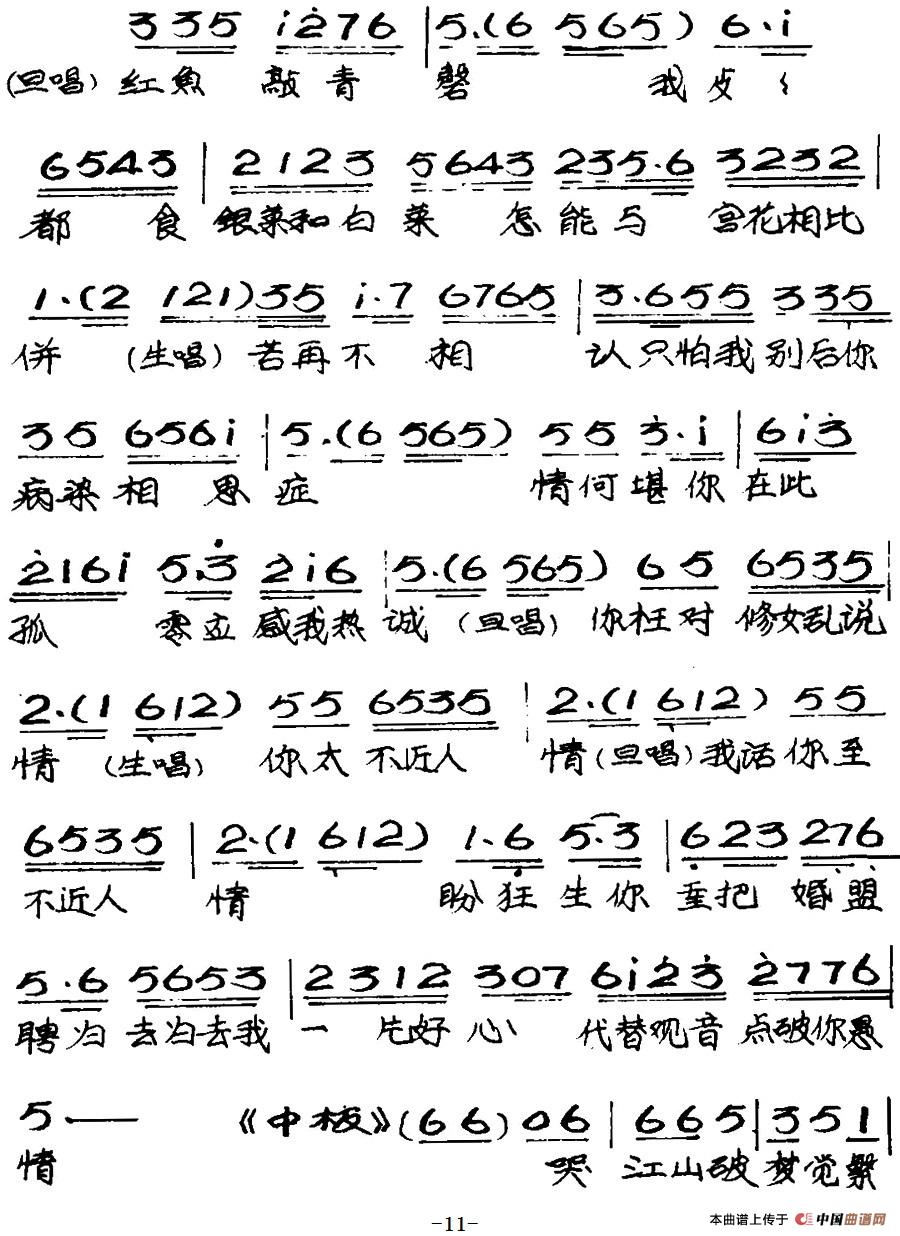 3 3 5 i 2 7 6 | 5.(6 5 6 5) 6.i
(旦唱) 红鱼 敲 青 磬 我 皮
6 5 4 3 | 2 1 2 3 5 6 4 3 2 3 5.6 3 2 3 2 |
都 食 银菜和白 菜 怎 能 与 宫花相比
1.(2 1 2 1) 3 5 i.7 6 7 6 5 | 3.6 5 5 3 3 5
併 (生唱) 若再不 相 认只怕我别后你
3 5 6 5 6 i | 5.(6 5 6 5) 5 5 3.i | 6 i 3
病染相 思 症 情何堪你在此
2 1 6 i 5.3 2 i 6 | 5.(6 5 6 5) 6 5 6 5 3 5 |
孤 零立感我热 诚 (旦唱) 你枉对 修女乱说
2.(1 6 1 2) 5 5 6 5 3 5 | 2.(1 6 1 2) 5 5
情 (生唱) 你太 不近人 情 (旦唱) 我话你至
6 5 3 5 | 2.(1 6 1 2) 1.6 5.3 | 6 2 3 2 7 6
不近人 情 盼狂生你 重把 婚盟
5.6 5 6 5 3 | 2 3 1 2 3 0 7 6 i 2 3 2 7 7 6 |
聘为 去为去我 一 片好 心 代替观音 点破你愚
5 — 《中板》 (6 6) 0 6 | 6 6 5 | 3 5 1 |
情 哭 江山破 梦觉繁
-11-
本曲谱上传于 中国曲谱网